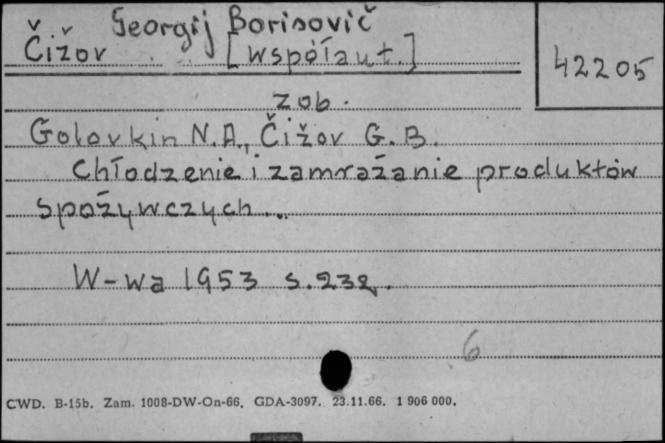 Čižov Georgij Borisovič
[współaut.]
42205
zob.
Golovkin N.A., Čižov G.B.
Chłodzenie i zamrażanie produktów
spożywczych...
W-wa 1953 s. 232.
6
CWD. B-15b. Zam. 1008-DW-On-66. GDA-3097. 23.11.66. 1 906 000.